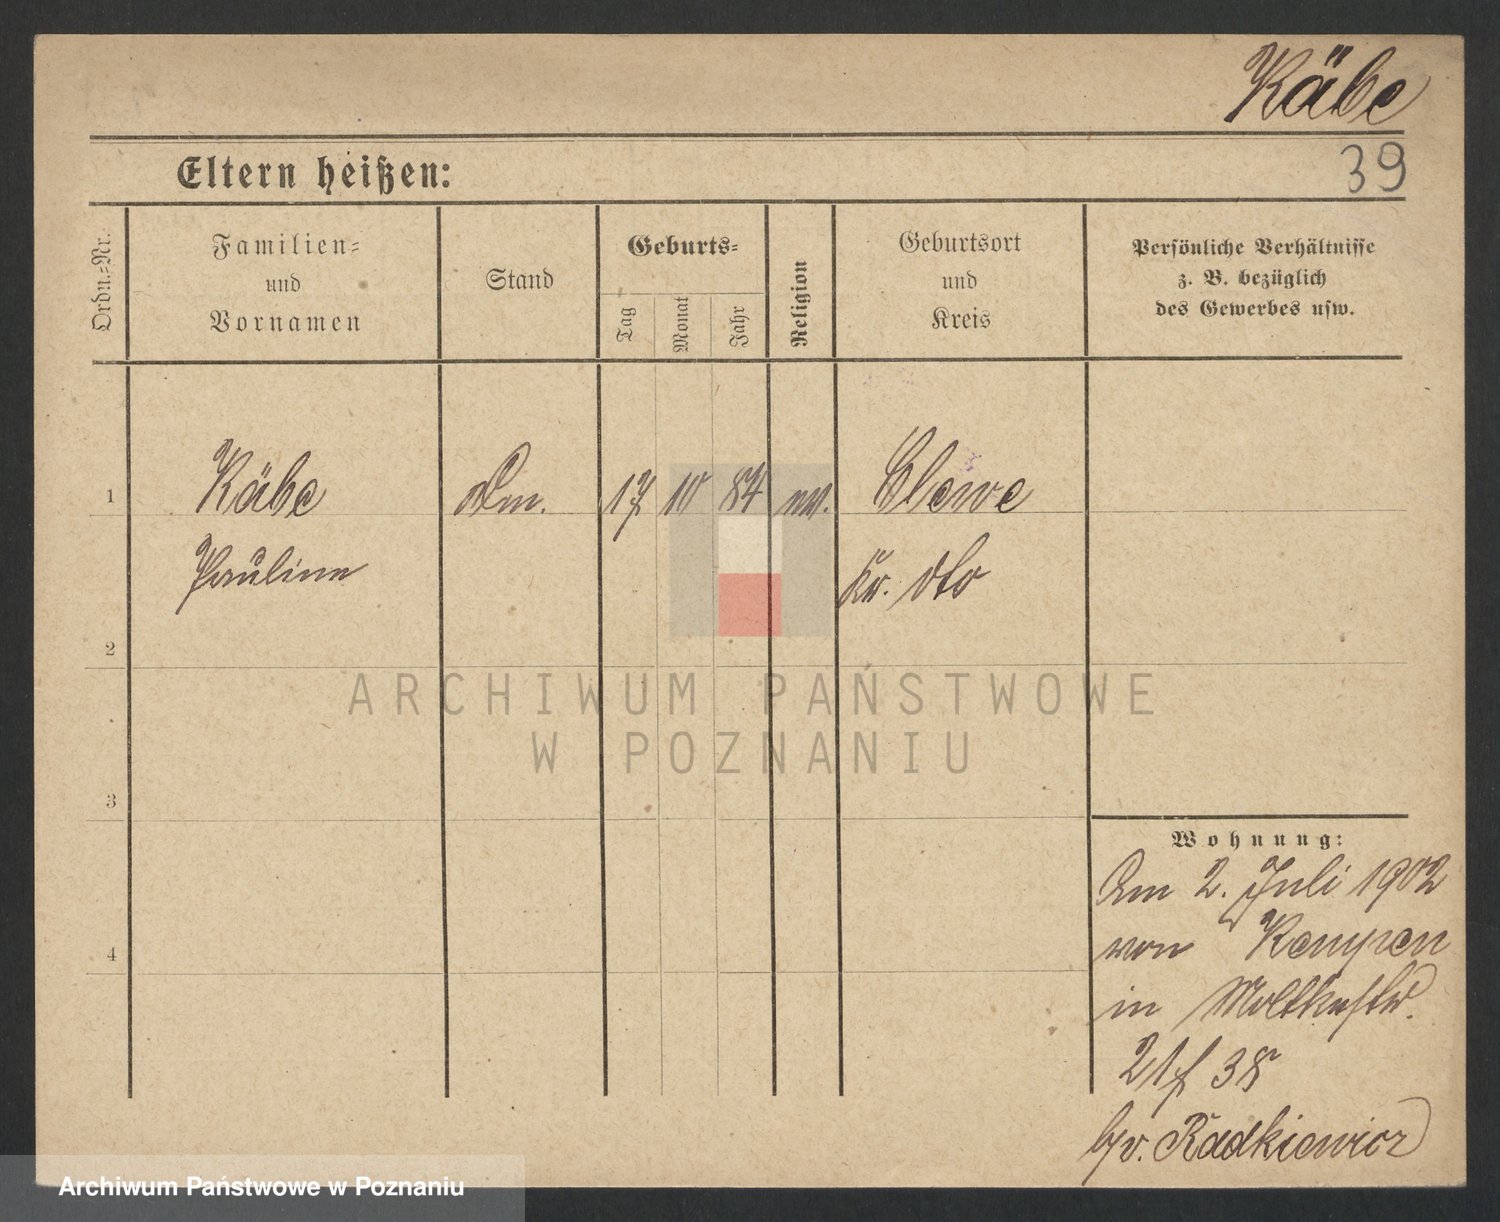 Käbe
Eltern heißen:
39
Ordn.-Nr.
Familien-
und
Vornamen
Stand
Geburts-
Tag
Monat
Jahr
Religion
Geburtsort
und
Kreis
Persönliche Verhältnisse
z. B. bezüglich
des Gewerbes usw.
1
Käbe
17
10
84
ev.
Clewe
Pauline
Kr. dto
2
ARCHIWUM PAŃSTWOWE
W POZNANIU
3
4
Wohnung:
Am 2. Juli 1902
von Kempen
in Moltkestr.
38
Radkiewicz
Archiwum Państwowe w Poznaniu